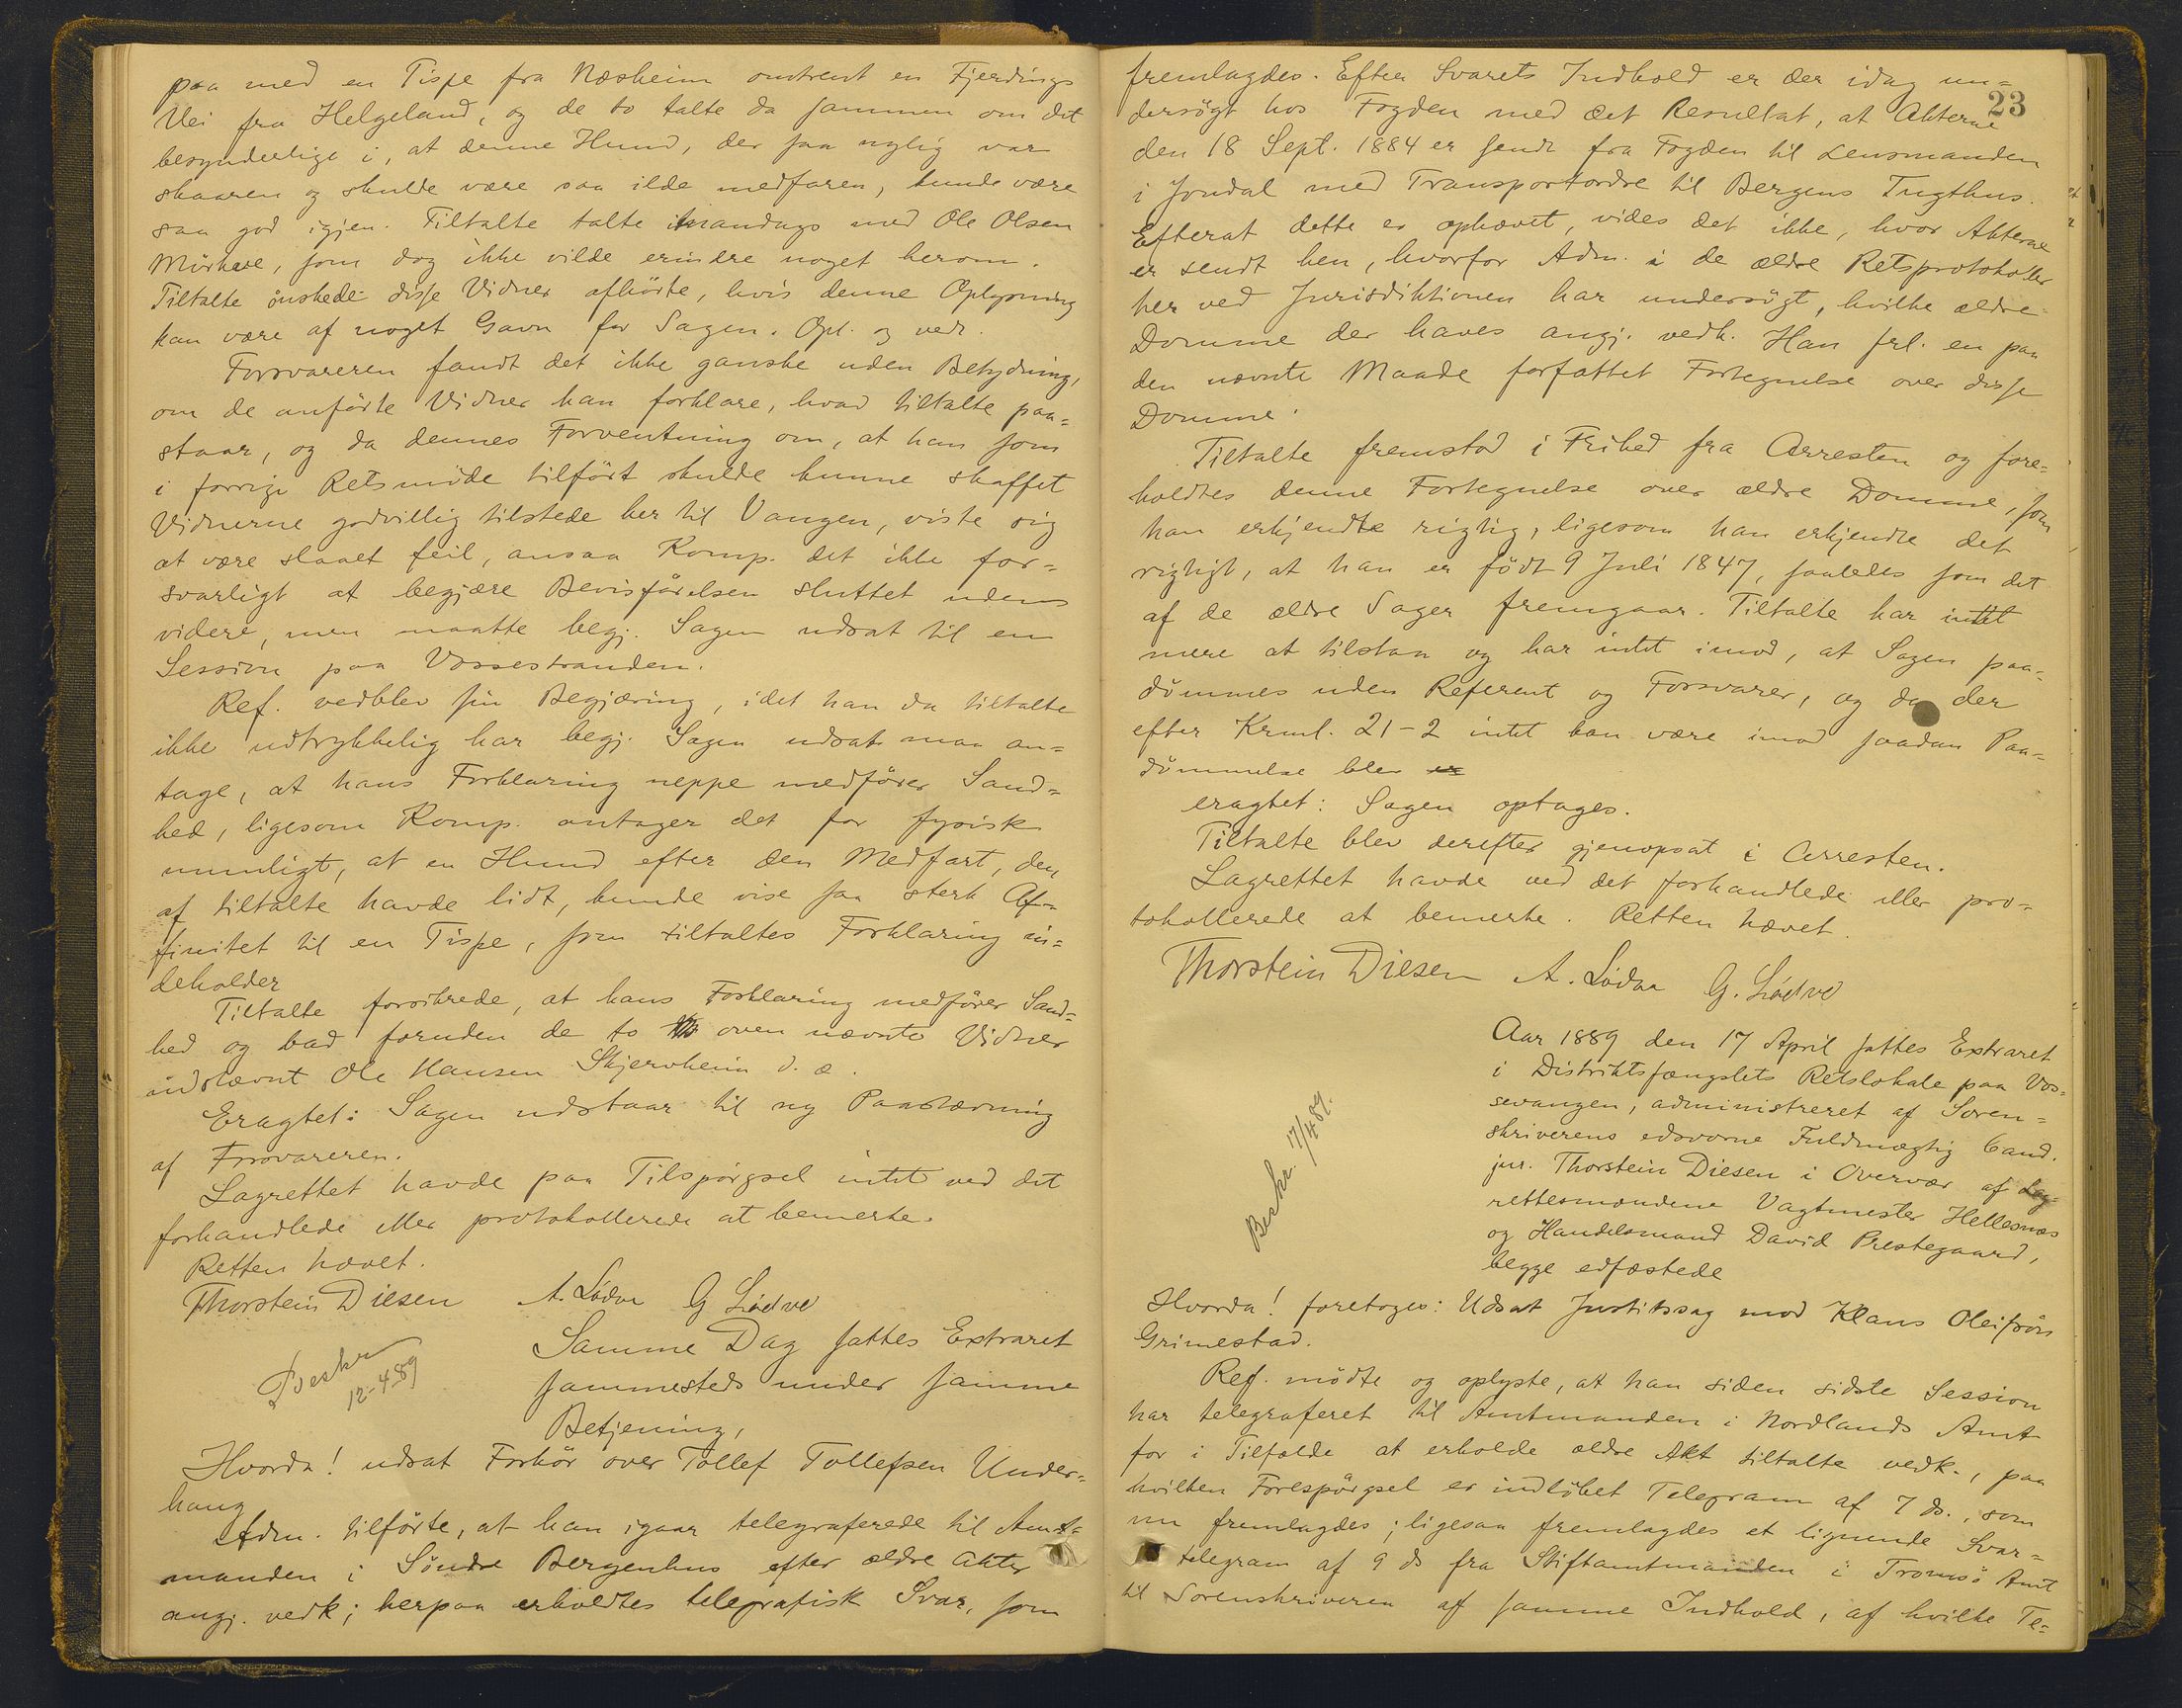 paa med en Tispe fra Næsheim omtrent en Fjerdings
Vei fra Helgeland, og de to talte da sammen om det
besynderlige i, at denne Hund, der saa nylig var
skaaren og skulde være saa ilde medfaren, kunde være
saa god igjen. Tiltalte talte imandags med Ole Olsen
Mörkve, som dog ikke vilde erindre noget herom.
Tiltalte önskede disse Vidner afhörte, hvis denne Oplysning
kan være af noget Gavn for Sagen. Opl. og vedt.
Forsvareren fandt det ikke ganske uden Betydning,
om de anförte Vidner kan forklare, hvad tiltalte paa=
staar, og da dennes Forventning om, at han som
i forrige Retsmöde tilfört skulde kunne skaffet
Vidnerne godvillig tilstede her til Vangen, viste sig
at være slaaet feil, ansaa Komp. det ikke for=
svarligt at begjære Bevisförelsen sluttet uden
videre, men maatte begj. Sagen udsat til en
Session paa Vossestranden.
Ref. vedblev sin Begjæring, idet han da tiltalte
ikke udtrykkelig har begj. Sagen udsat maa an=
tage, at hans Forklaring neppe medförer Sand=
hed, ligesom Komp. antager det for fysisk
umuligt, at en Hund efter den Medfart, den
af tiltalte havde lidt, kunde vise saa sterk Af=
finitet til en Tispe, som tiltaltes Forklaring in=
deholder
Tiltalte forsikrede, at hans Forklaring medförer Sand=
hed og bad foruden de to oven nævnte Vidner
indstævnt Ole Hansen Skjerveheim d. æ.
Eragtet: Sagen udstaar til ny Paastævning
af Forsvareren.
Lagrettet havde paa Tilspörgsel intet ved det
forhandlede eller protokollerede at bemerke.
Retten hævet.
Thorstein Diesen A. Lödve G Lödve
Beskr
12-4 89
Samme Dag sattes Extraret
sammesteds under samme
Betjening,
Hvorda! udsat Forhör over Tollef Tollefsen Under=
haug
Adm. tilförte, at han igaar telegraferede til Amt=
manden i Söndre Bergenhus efter ældre Akter
angj. vedk; herpaa erholdtes telegrafisk Svar, som
23
fremlagdes. Efter Svarets Indhold er der idag un=
dersögt hos Fogden med det Resultat, at Akterne
den 18 Sept. 1884 er sendt fra Fogden til Lensmanden
i Jondal med Transportordre til Bergens Tugthus.
Efterat dette er ophævet, vides det ikke, hvor Akterne
er sendt hen, hvorfor Adm. i de ældre Retsprotokoller
her ved Jurisdiktionen har undersögt, hvilke ældre
Domme der haves angj. vedk. Han frl. en paa
den nævnte Maade forfattet Fortegnelse over disse
Domme.
Tiltalte fremstod i Frihed fra Arresten og fore=
holdtes denne Fortegnelse over ældre Domme, som
han erkjendte rigtig, ligesom han erkjendte det
rigtigt, at han er födt 9 Juli 1847, saaledes som det
af de ældre Sager fremgaar. Tiltalte har intet
mere at tilstaa og har intet imod, at Sagen paa=
dömmes uden Referent og Forsvarer, og da der
efter Krml. 21-2 intet kan være imod saadan Paa=
dömmelse blev er
eragtet: Sagen optages.
Tiltalte blev derefter gjenopsat i Arresten.
Lagrettet havde ved det forhandlede eller pro=
tokollerede at bemerke. Retten hævet.
Thorstein Diesen A. Lödve G. Lödve
Beskr. 17/4 89.
Aar 1889 den 17 April sattes Extraret
i Distriktsfængslets Retslokale paa Vos=
sevangen, administreret af Soren=
skriverens edsvorne Fuldmægtig Cand.
jur. Thorstein Diesen i Overvær af Lag=
rettesmændene Vagtmester Hellesnæs
og Handelsmand David Prestegaard,
begge edfæstede
Hvorda! foretoges: Udsat Justitssag mod Klaus Oleifsön
Grimestad.
Ref. mödte og oplyste, at han siden sidste Session
har telegraferet til Amtmanden i Nordlands Amt
for i Tilfælde at erholde ældre Akt tiltalte vedk., paa
hvilken Forespörgsel er indlöbet Telegram af 7 ds., som
nu fremlagdes; ligesaa fremlagdes et lignende Svar=
telegram af 9 ds fra Stiftamtmanden i Tromsö Amt
til Sorenskriveren af samme Indhold, af hvilke Te=